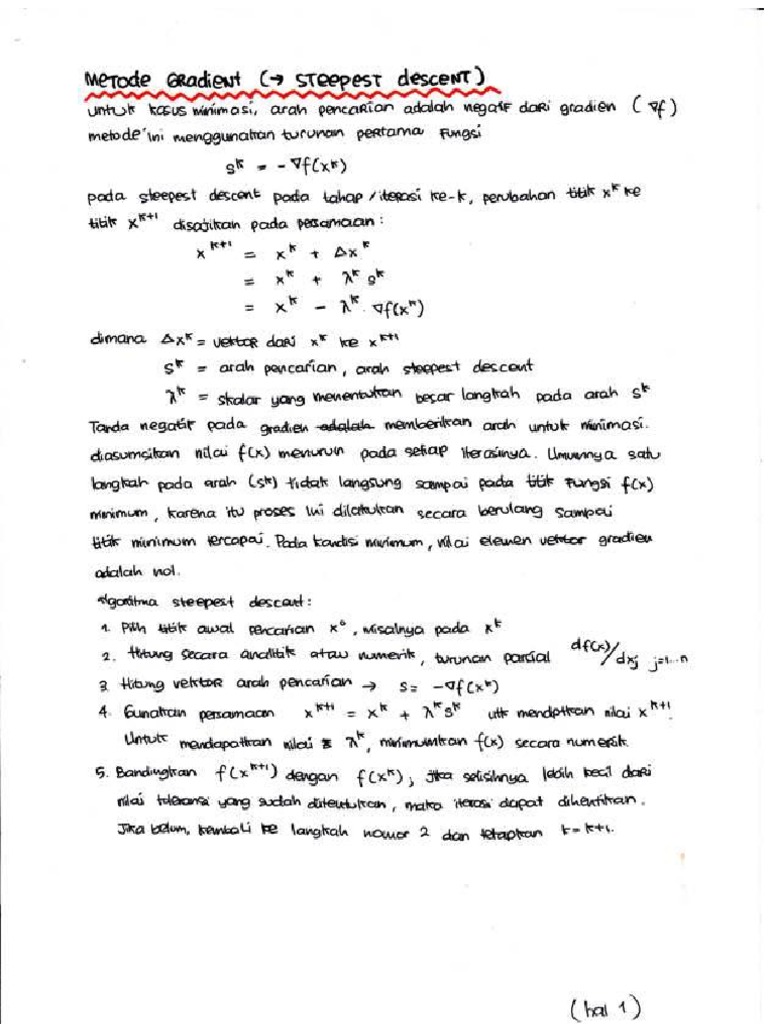 Metode Gradient (→ Steepest descent)
untuk kasus minimasi, arah pencarian adalah negatif dari gradien (∇f)
metode ini menggunakan turunan pertama fungsi
s^k = -∇f(x^k)
pada steepest descent pada tahap/iterasi ke-k, perubahan titik x^k ke
titik x^{k+1} disajikan pada persamaan:
x^{k+1} = x^k + Δx^k
= x^k + λ^k s^k
= x^k - λ^k . ∇f(x^k)
dimana Δx^k = vektor dari x^k ke x^{k+1}
s^k = arah pencarian, arah steepest descent
λ^k = skalar yang menentukan besar langkah pada arah s^k
Tanda negatif pada gradien adalah memberikan arah untuk minimasi.
diasumsikan nilai f(x) menurun pada setiap iterasinya. Umumnya satu
langkah pada arah (s^k) tidak langsung sampai pada titik fungsi f(x)
minimum, karena itu proses ini dilakukan secara berulang sampai
titik minimum tercapai. Pada kondisi minimum, nilai elemen vektor gradien
adalah nol.
Algoritma steepest descent:
1. Pilih titik awal pencarian x°, misalnya pada x^k
2. Hitung secara analitik atau numerik, turunan parsial df(x)/dxj j=1...n
3. Hitung vektor arah pencarian → s = -∇f(x^k)
4. Gunakan persamaan x^{k+1} = x^k + λ^k s^k utk mendptkan nilai x^{k+1}.
Untuk mendapatkan nilai λ^k, minimumkan f(x) secara numerik.
5. Bandingkan f(x^{k+1}) dengan f(x^k), jika selisihnya lebih kecil dari
nilai toleransi yang sudah ditentukan, maka iterasi dapat dihentikan.
Jika belum, kembali ke langkah nomor 2 dan tetapkan k = k+1.
(hal 1)